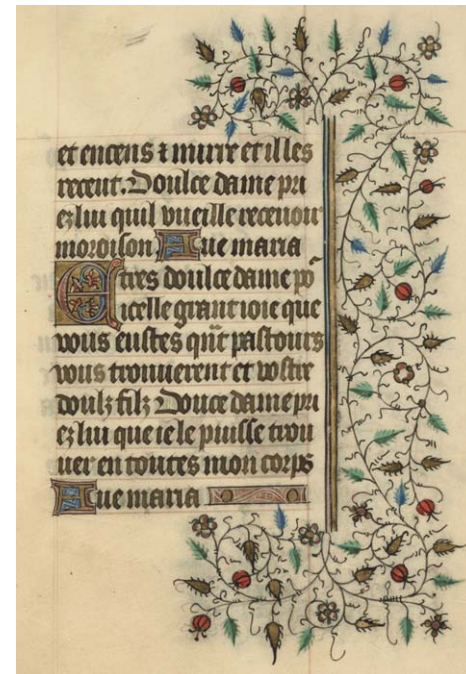 et encens ⁊ mirre et il les
recent. Doulce dame pri
ez lui quil vueille recevoir
moroison Ave maria
Et tres doulce dame põ
icelle grant ioie que
vous eustes qñt pastours
vous trouuerent et vostre
doulz filz Douce dame pri
ez lui que ie le puisse trou
uer en toutes mon corps
Ave maria